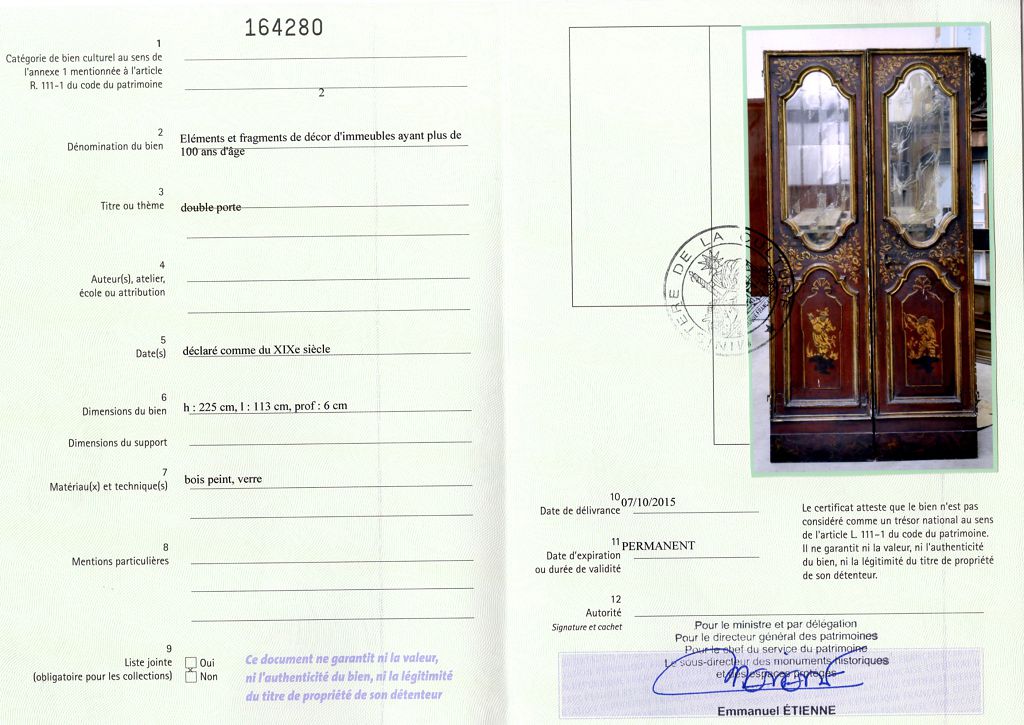 164280
1
Catégorie de bien culturel au sens de
l'annexe 1 mentionnée à l'article
R. 111-1 du code du patrimoine
2
2
Dénomination du bien
Eléments et fragments de décor d'immeubles ayant plus de
100 ans d'âge
3
Titre ou thème
double porte
4
Auteur(s), atelier,
école ou attribution
5
Date(s)
déclaré comme du XIXe siècle
6
Dimensions du bien
h : 225 cm, l : 113 cm, prof : 6 cm
Dimensions du support
7
Matériau(x) et technique(s)
bois peint, verre
8
Mentions particulières
9
Liste jointe
(obligatoire pour les collections)
Oui
Non
Ce document ne garantit ni la valeur,
ni l'authenticité du bien, ni la légitimité
du titre de propriété de son détenteur
MINISTERE DE LA CULTURE
10
Date de délivrance
07/10/2015
11
Date d'expiration
ou durée de validité
PERMANENT
Le certificat atteste que le bien n'est pas
considéré comme un trésor national au sens
de l'article L. 111-1 du code du patrimoine.
Il ne garantit ni la valeur, ni l'authenticité
du bien, ni la légitimité du titre de propriété
de son détenteur.
12
Autorité
Signature et cachet
Pour le ministre et par délégation
Pour le directeur général des patrimoines
Pour le chef du service du patrimoine
Le sous-directeur des monuments historiques
et des espaces protégés
Emmanuel ÉTIENNE